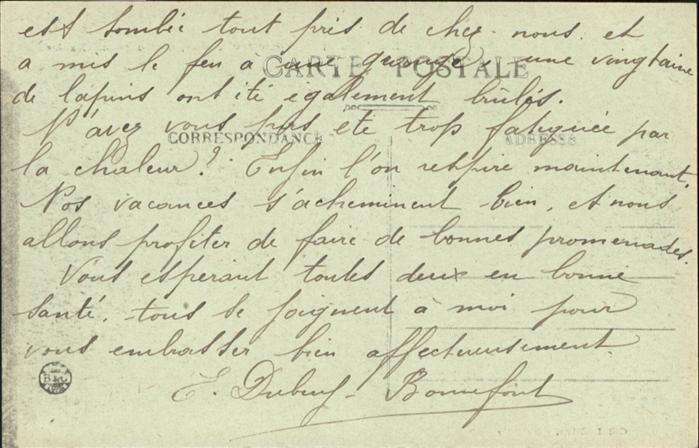 est tombée tout près de chez nous et
a mis le feu à une grange, une vingtaine
CARTE POSTALE
de lapins ont été egalement brûlés.
N'avez vous pas été trop fatiguée par
CORRESPONDANCE
ADRESSE
la chaleur? Enfin l'on respire maintenant.
Nos vacances s'acheminent bien, et nous
allons profiter de faire de bonnes promenades.
Vous esperant toutes deux en bonne
santé. tous se joignent à moi pour
vous embrasser bien affectueusement.
E. Bonnefont